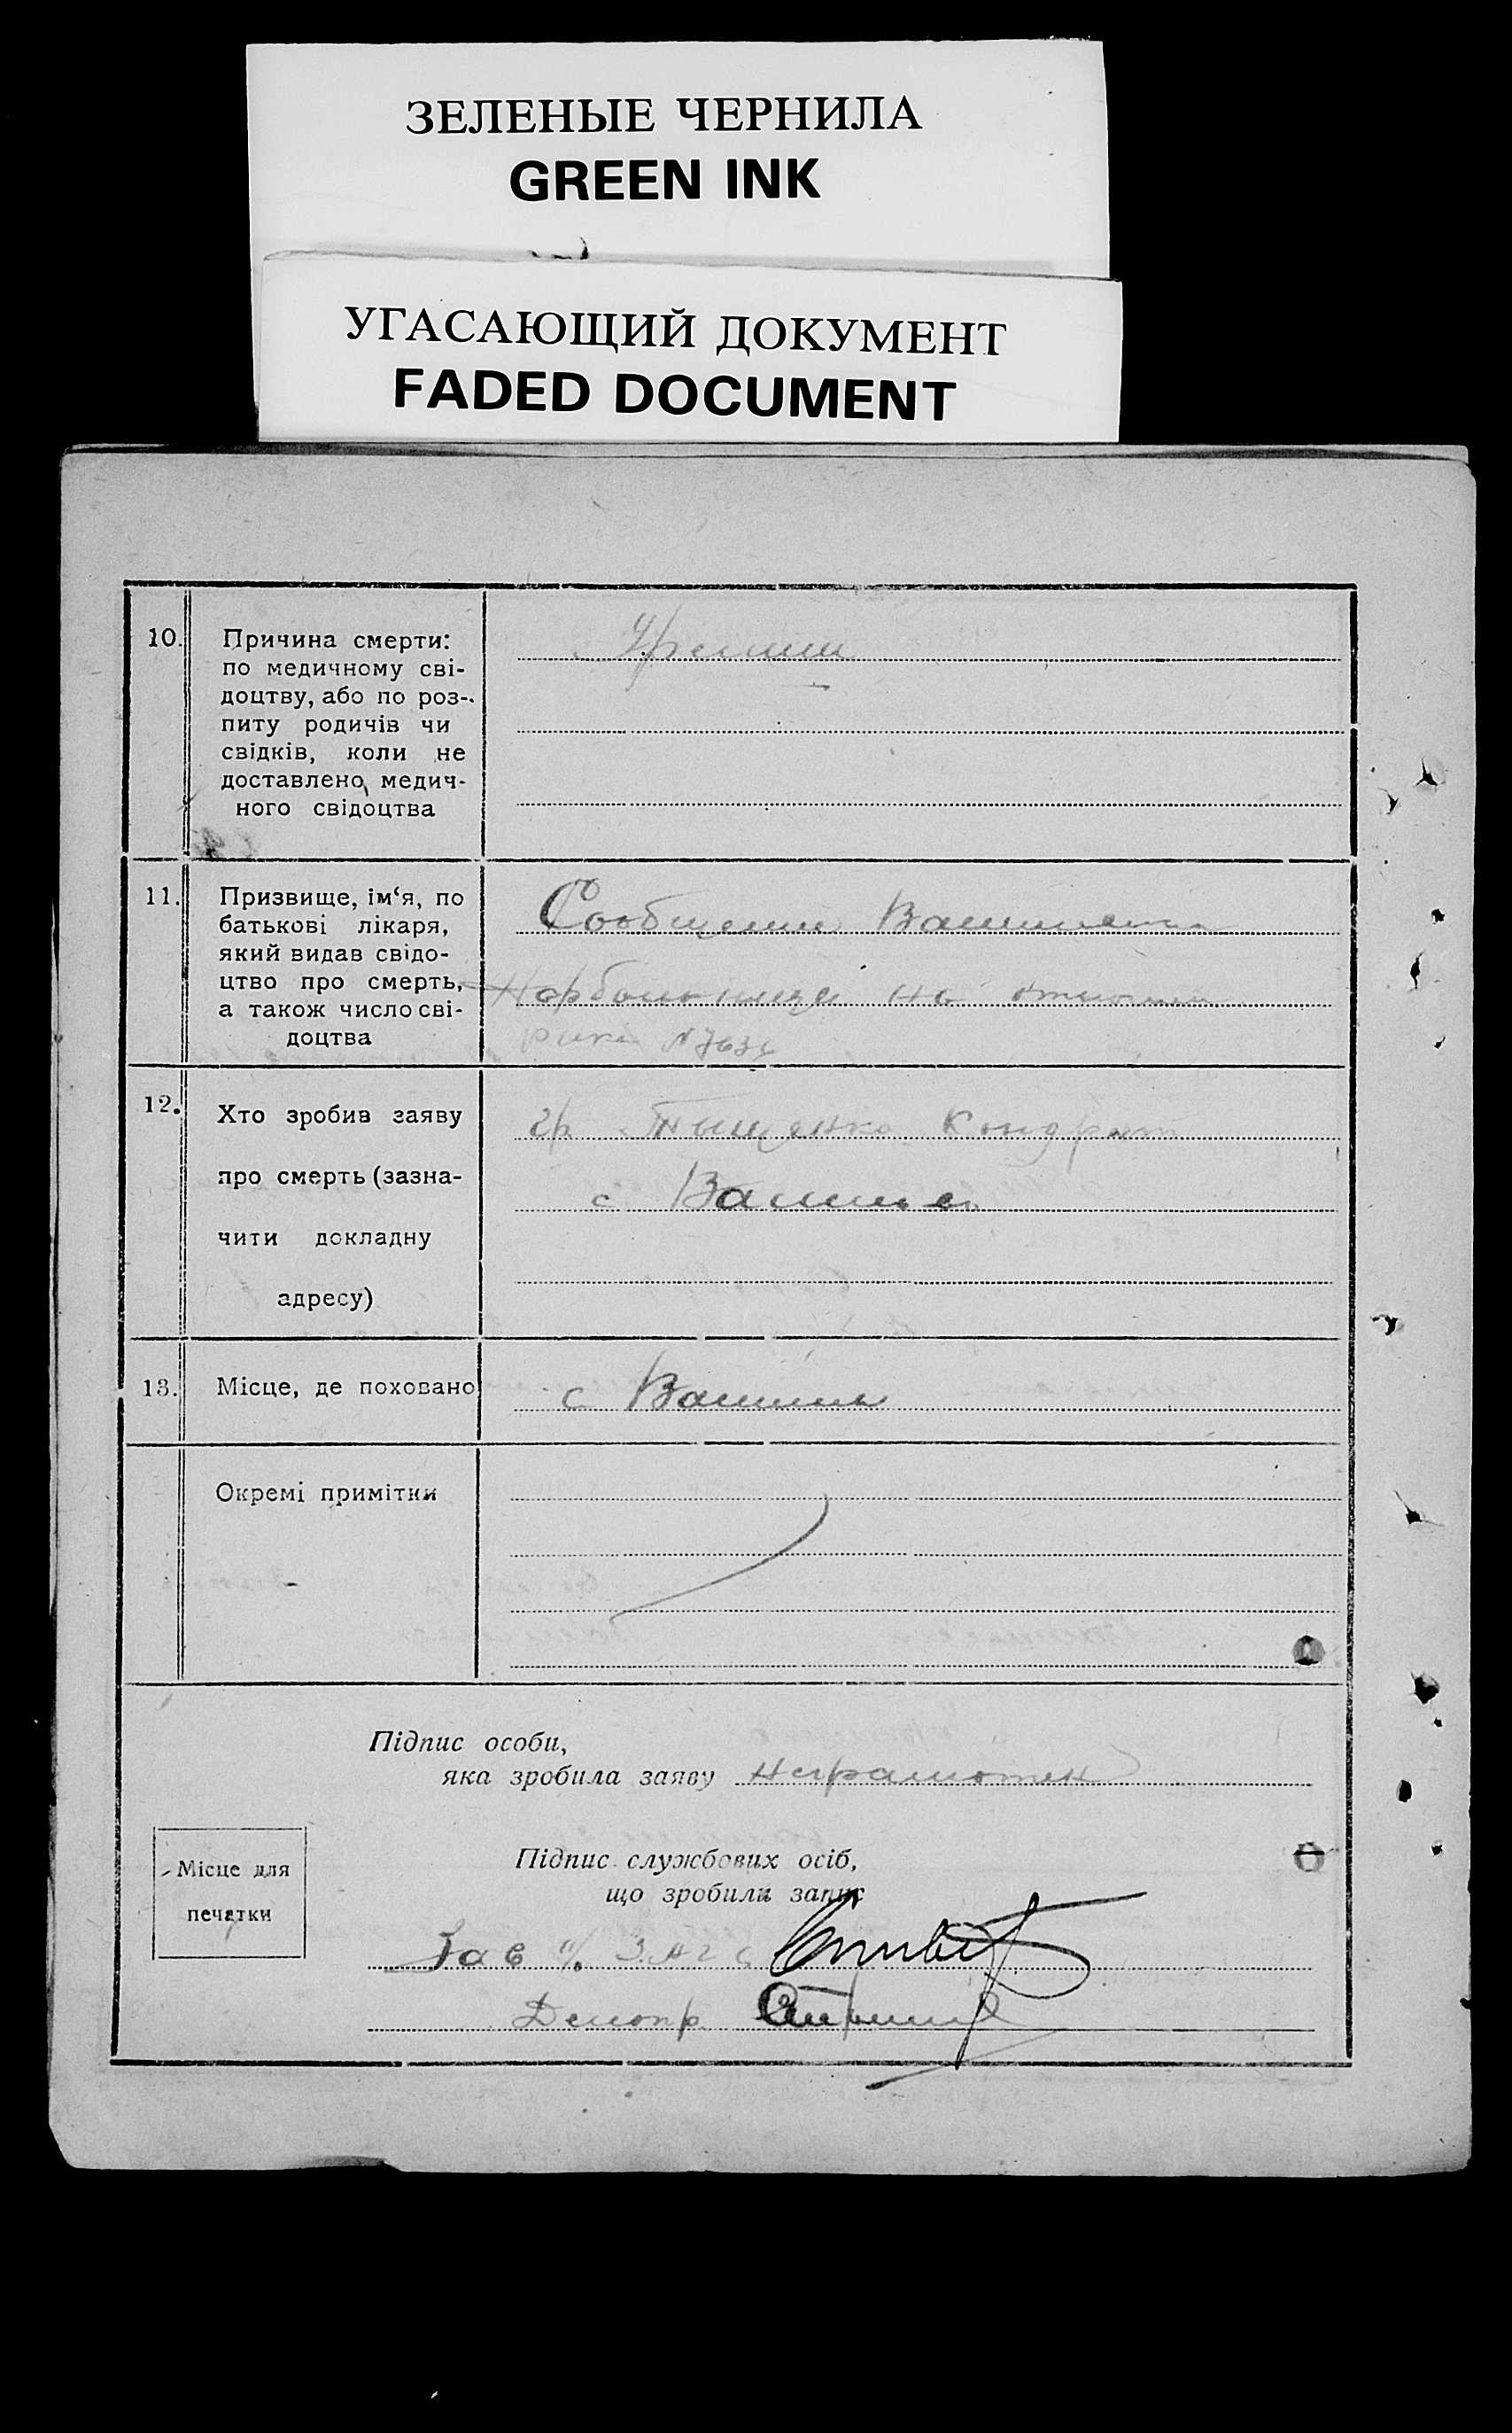 ЗЕЛЕНЫЕ ЧЕРНИЛА
GREEN INK
УГАСАЮЩИЙ ДОКУМЕНТ
FADED DOCUMENT
10.
Причина смерти:
по медичному сві-
доцтву, або по роз-
питу родичів чи
свідків, коли не
доставлено медич-
ного свідоцтва
11.
Призвище, ім‘я, по
батькові лікаря,
який видав свідо-
цтво про смерть,
а також число сві-
доцтва
Сообщение
на
N
12.
Хто зробив заяву
про смерть (зазна-
чити докладну
адресу)
гр Тыщенко Кондрат
с
13.
Місце, де поховано
с
Окремі примітки
Підпис особи,
яка зробила заяву неграмотен
Місце для
печатки
Підпис службових осіб,
що зробили запис
Зав ЗАГС
Делопр